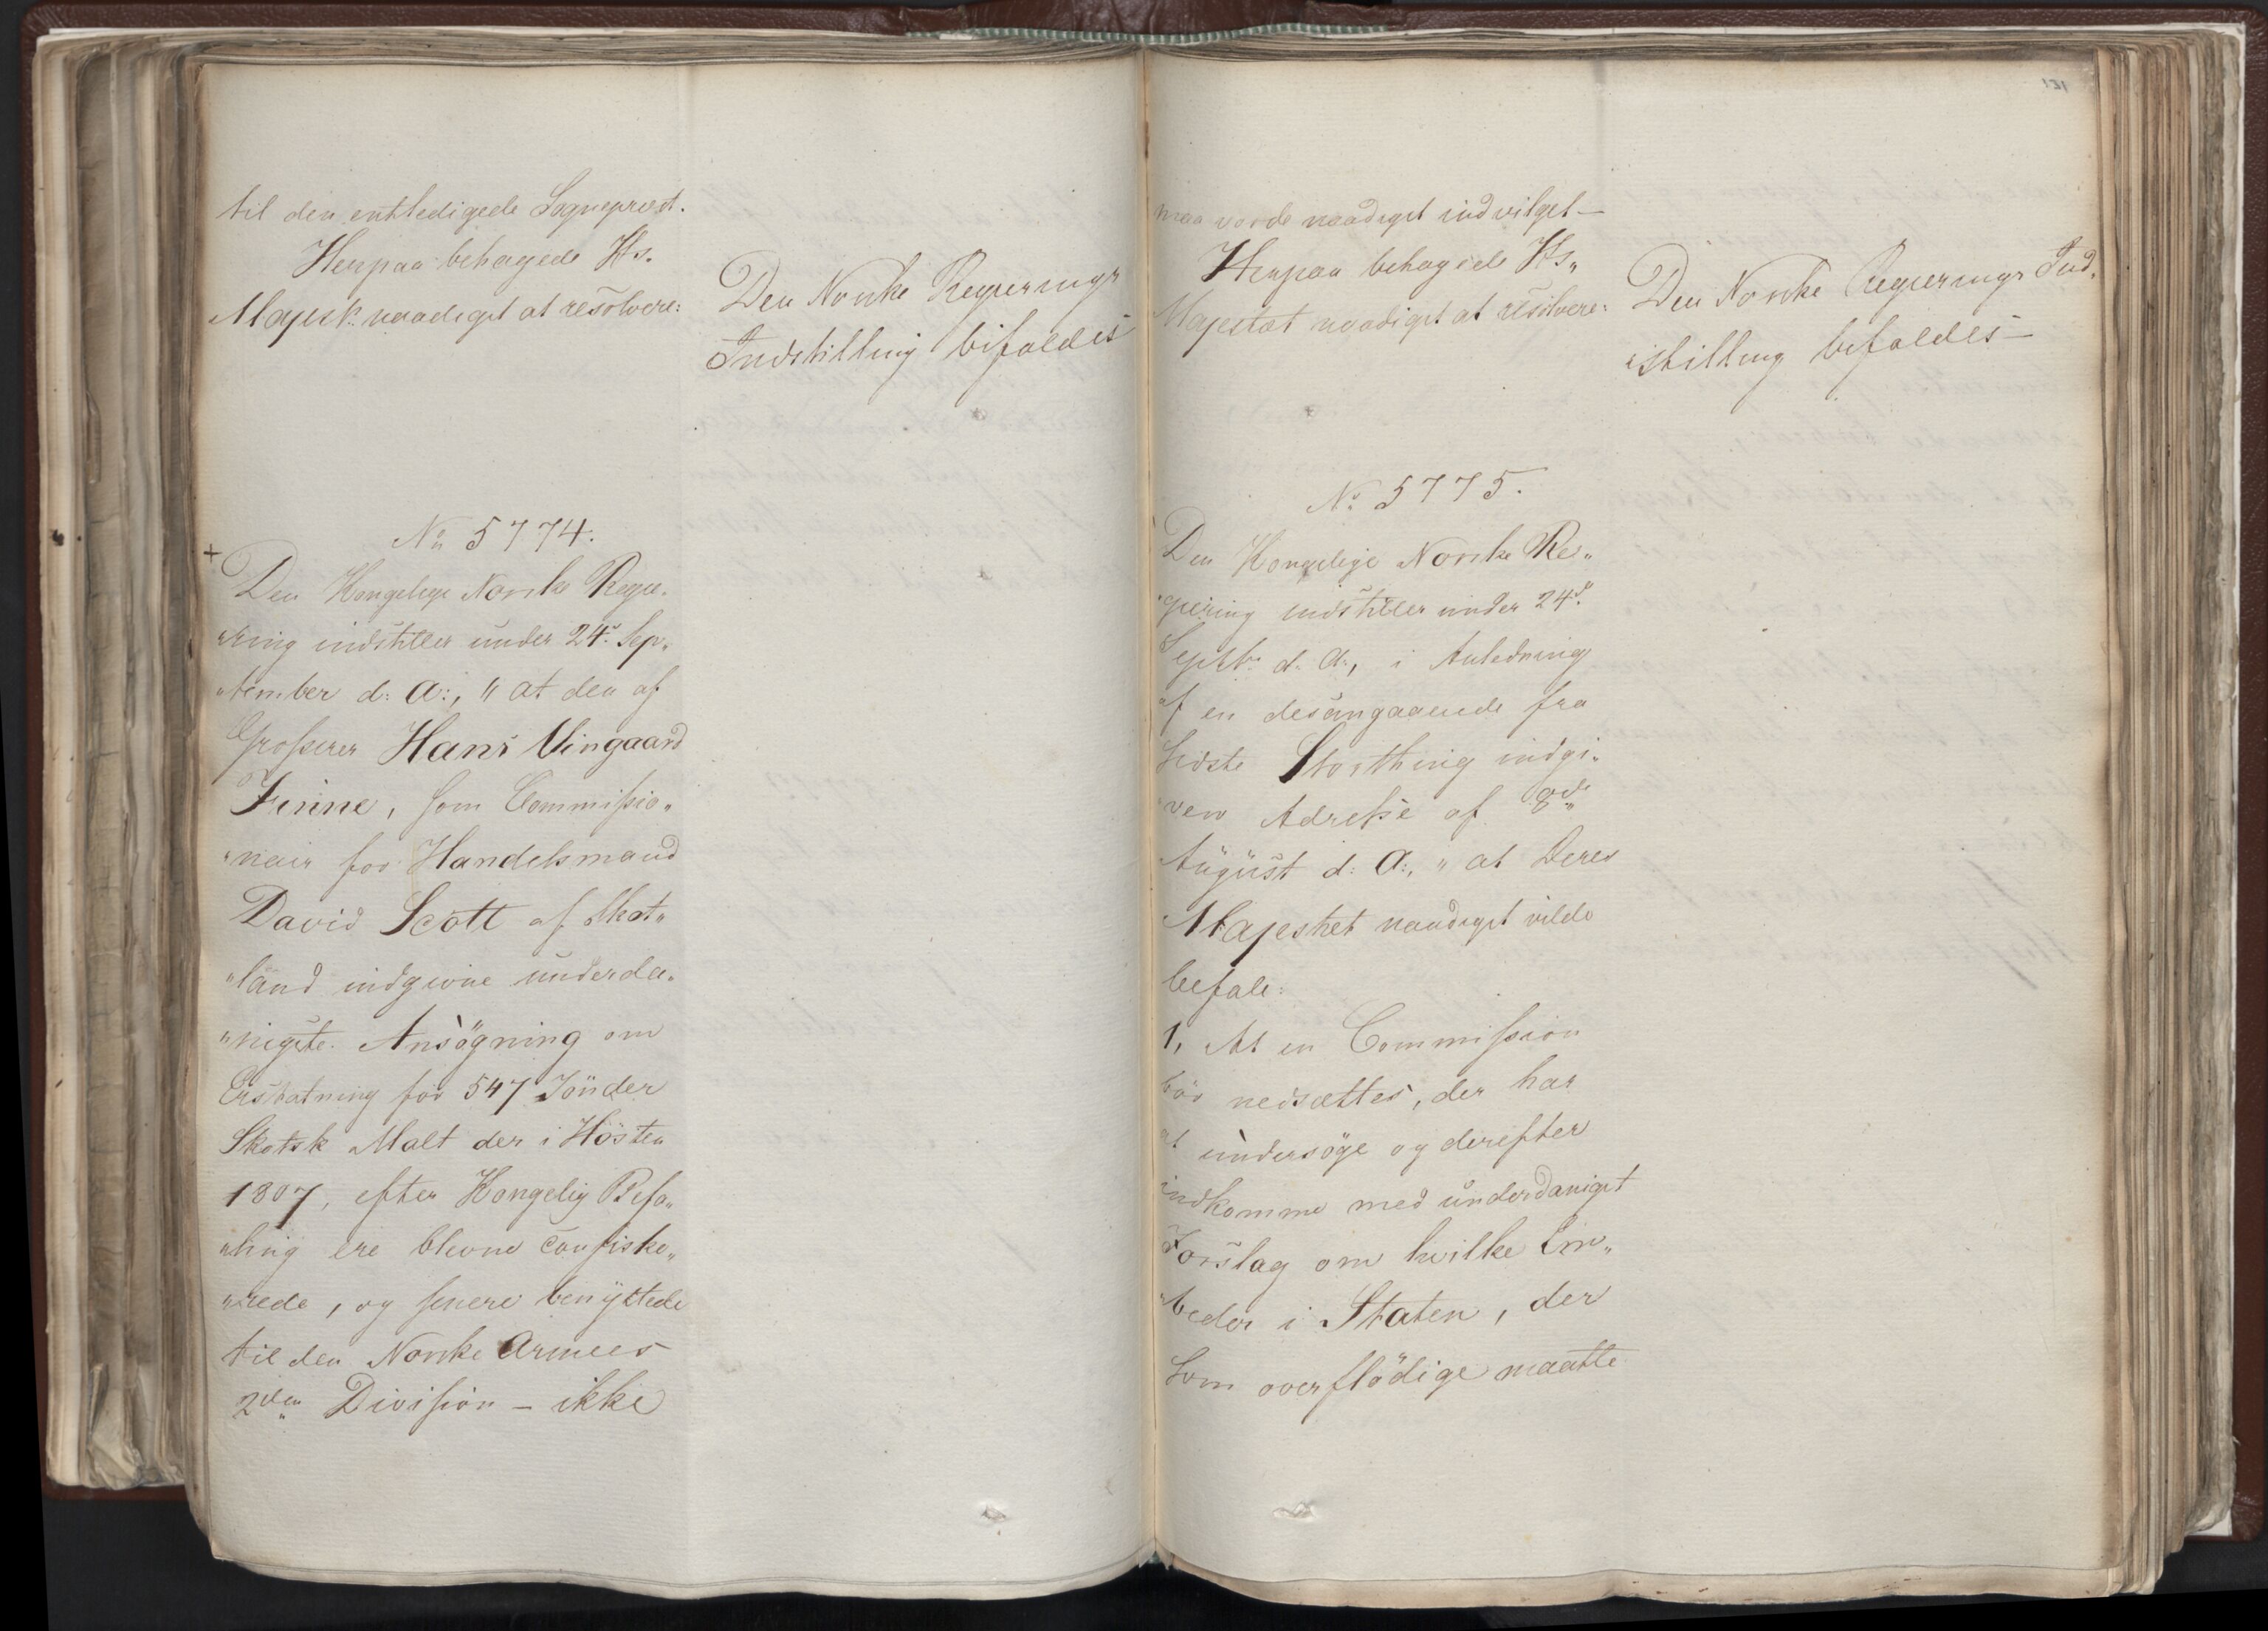 til den entledigede Sognepræst.
Herpaa behagede Hs.
Majest. naadigst at resolvere:
Den Norske Regierings
Indstilling bifaldes
No 5774.
+
Den Kongelige Norske Regie„
„ring indstiller under 24. Sep„
„tember d: A:, „ at den af
Grosserer Hans Vingaard
Finne, som Commissio„
„nair for Handelsmand
David Scott af Skot„
„land indgivne underda„
„nigste Ansögning om
Erstatning for 547 Tönder
Skotsk Malt der i Hösten
1807, efter Kongelig Befa„
„ling ere blevne confiske„
„rede, og senere benyttede
til den Norske Armees
2den Division – ikke
161
maa vorde naadigst indvilget –
Herpaa behagede Hs„
Majestæt naadigst at resolvere:
Den Norske Regierings Ind„
„stilling bifaldes –
No 5775.
Den Kongelige Norske Re„
„giering indstiller under 24d.
Septbr d. A., i Anledning
af en desangaaende fra
sidste Storthing indgi„
„ven Adresse af 8de
August d: A:, „ at Deres
Majestet naadigst vilde
befale:
1, At en Commission
bör nedsættes, der har
at undersöge og derefter
indkomme med underdanigst
Forslag om hvilke Em„
„beder i Staten, der
som overflödige maatte